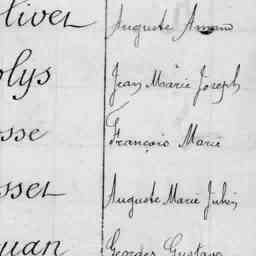 Olivet Auguste Amand
olys Jean Marie Joseph
sse François Marie
sset Auguste Marie Julien
uan Georges Gustave